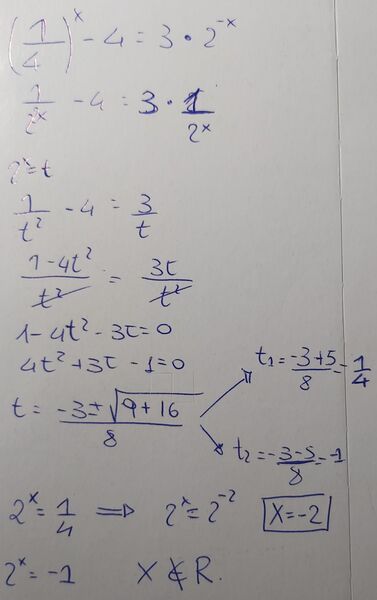 (1/4)^x - 4 = 3 · 2^-x
1/2^x - 4 = 3 · 1/2^x
2^x = t
1/t² - 4 = 3/t
(1-4t²)/t² = 3t/t²
1-4t²-3t=0
4t²+3t-1=0
t = (-3±√(9+16))/8
t₁ = (-3+5)/8 = 1/4
t₂ = (-3-5)/8 = -1
2^x = 1/4 ⟹ 2^x = 2^-2 X=-2
2^x = -1 X ∉ R.